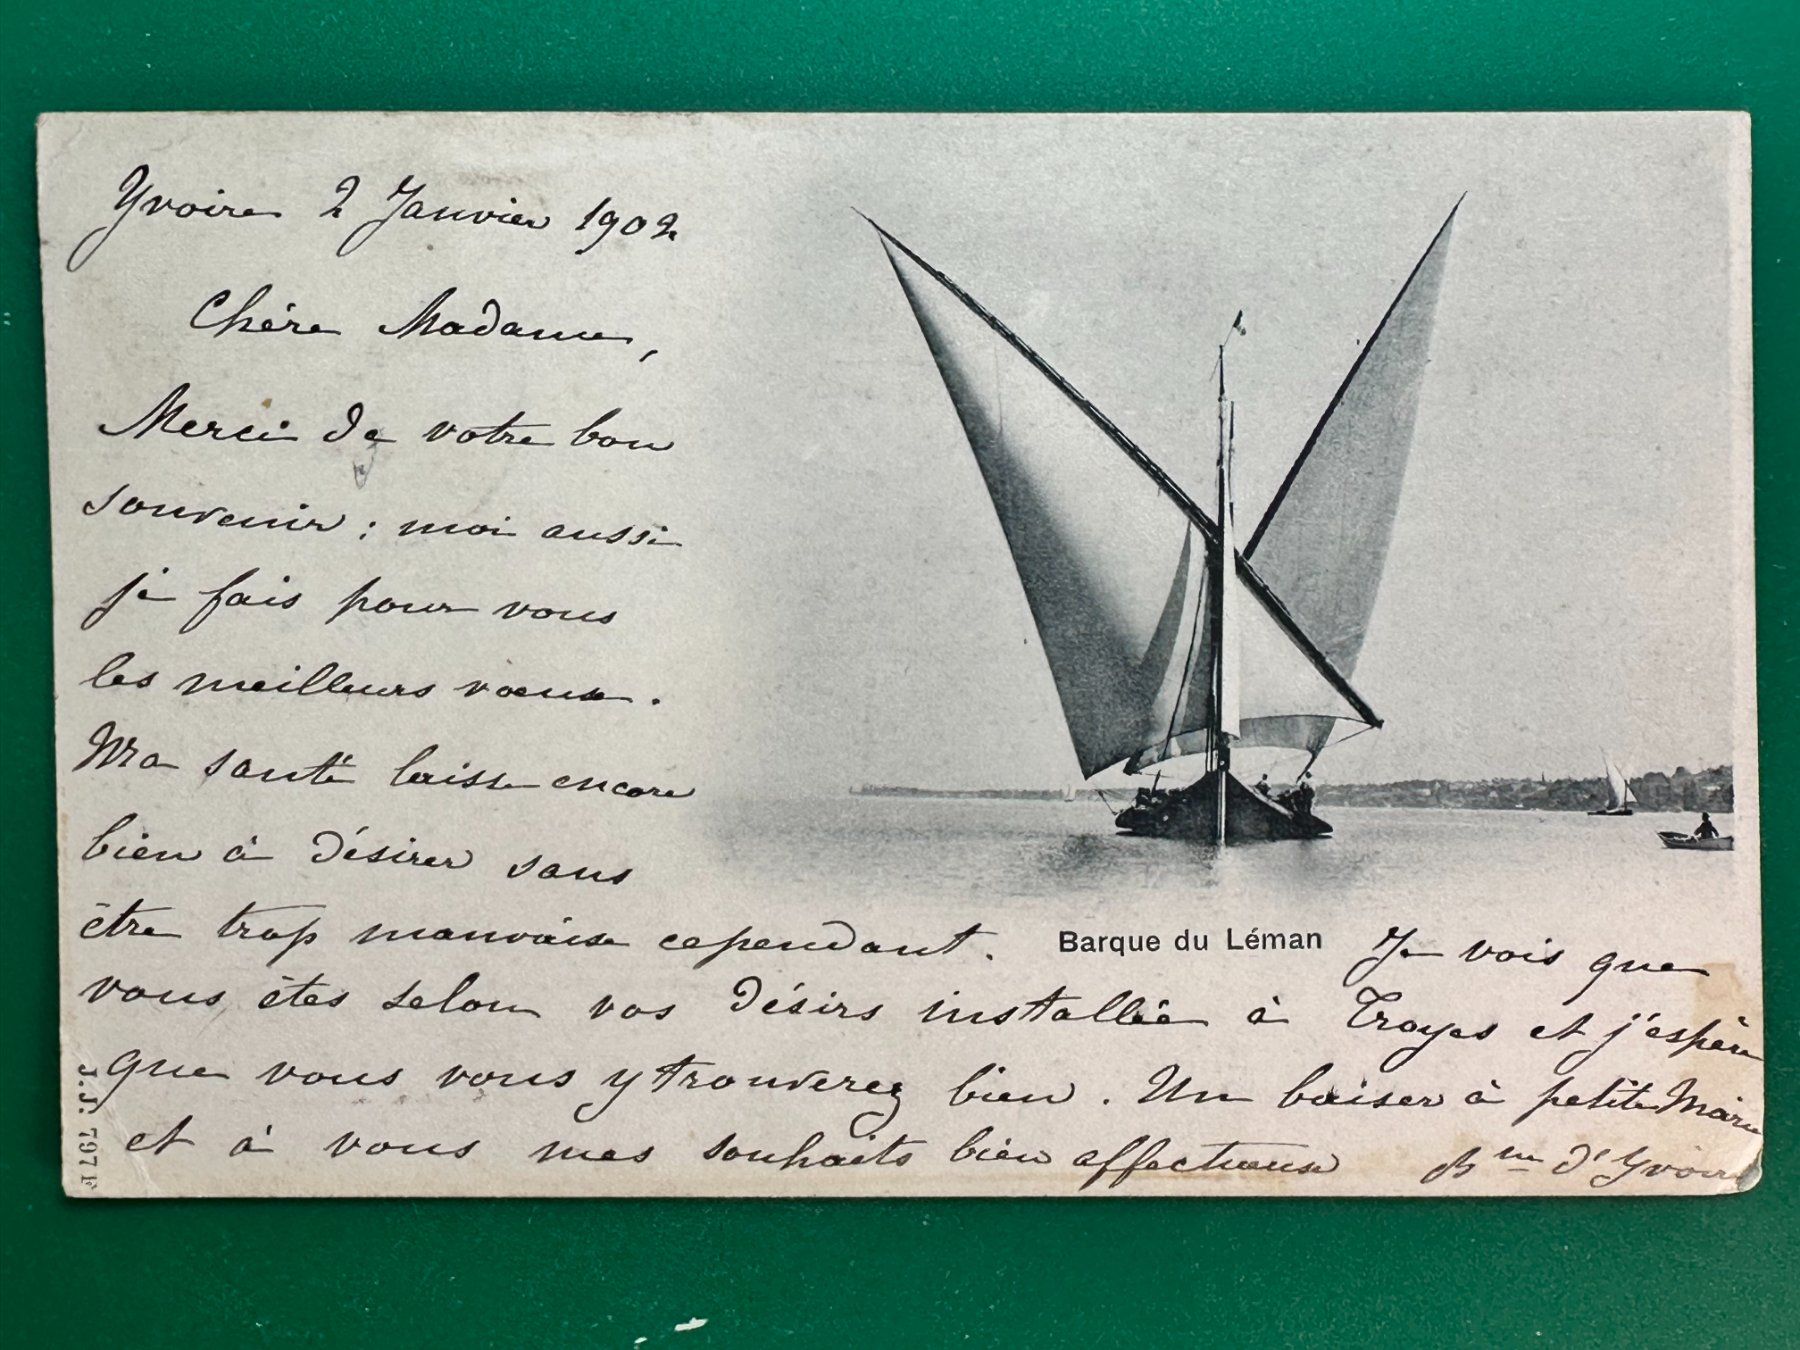 Yvoire 2 Janvier 1902
Chère Madame,
Merci de votre bon
souvenir : moi aussi
je fais pour vous
les meilleurs vœux.
Ma santé laisse encore
bien à désirer sans
être trop mauvaise cependant.
Barque du Léman
Je vois que
vous êtes selon vos désirs installée à Troyes et j'espère
que vous vous y trouverez bien. Un baiser à petite Marie
et à vous mes souhaits bien affectueux
d'Yvoire
J.J. 797 F